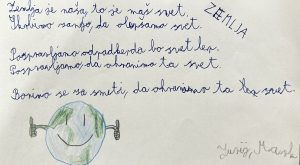 Zemlja je naša, to je naš svet.
Skrbimo zanjo, da olepšamo svet.
ZEMLJA
Pospravljamo odpadke, da bo svet lep.
Pospravljamo, da ohranimo ta svet.
Borimo se za smeti, da ohranimo ta lep svet.